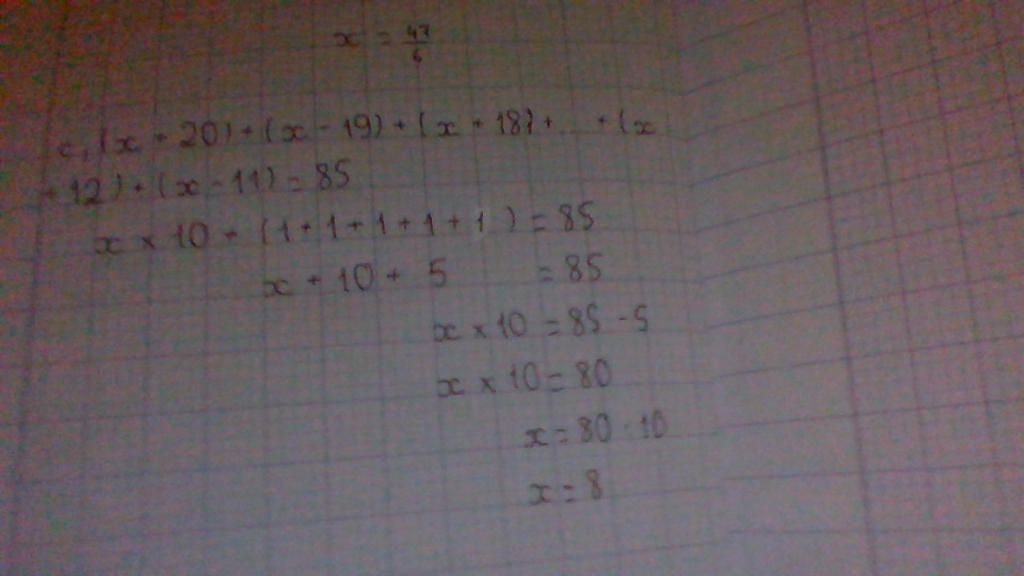 x = 47/6
c, (x + 20) + (x - 19) + (x + 18) + ... + (x
+ 12) + (x - 11) = 85
x × 10 + (1 + 1 + 1 + 1 + 1) = 85
x + 10 + 5 = 85
x × 10 = 85 - 5
x × 10 = 80
x = 80 : 10
x = 8